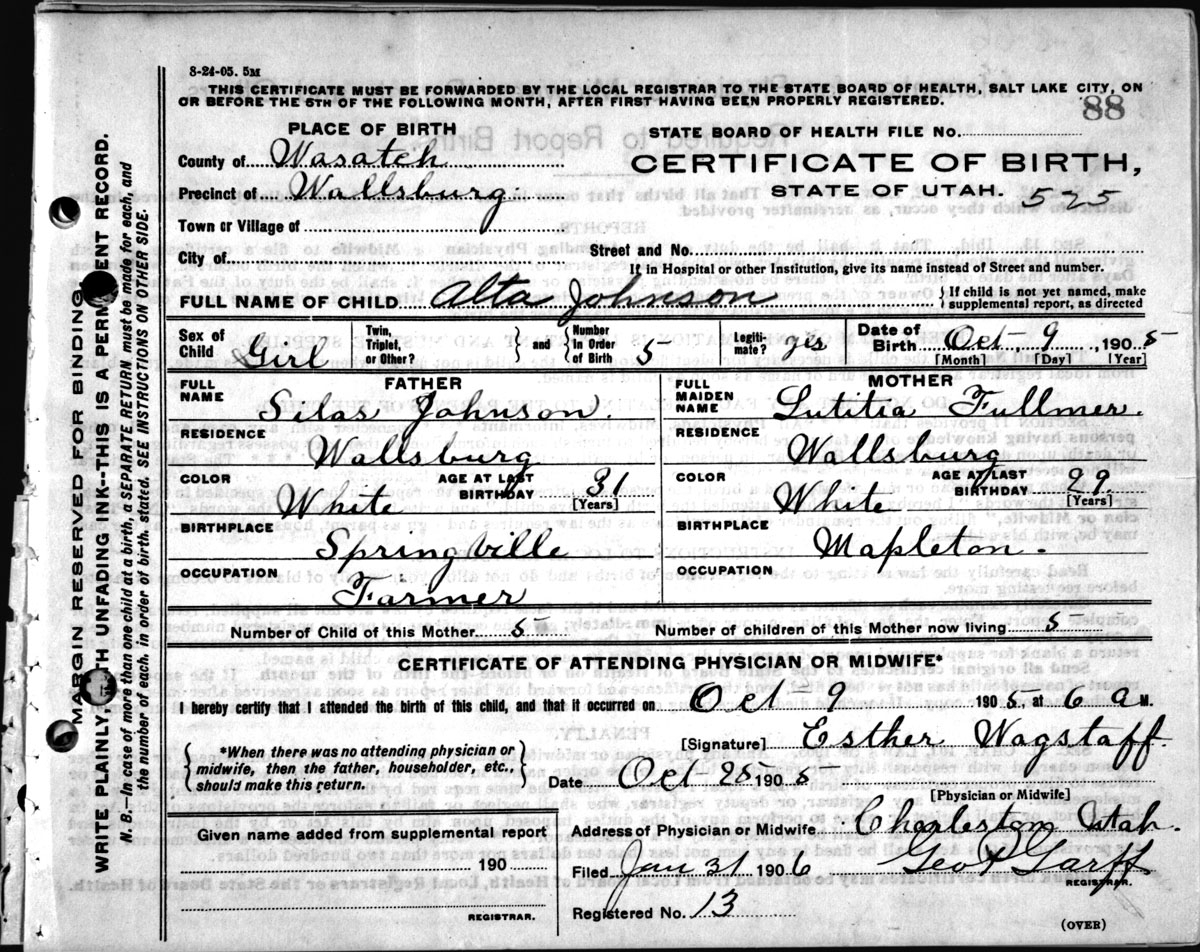 8-24-05. 5M
THIS CERTIFICATE MUST BE FORWARDED BY THE LOCAL REGISTRAR TO THE STATE BOARD OF HEALTH, SALT LAKE CITY, ON
OR BEFORE THE 5TH OF THE FOLLOWING MONTH, AFTER FIRST HAVING BEEN PROPERLY REGISTERED.
88
PLACE OF BIRTH
STATE BOARD OF HEALTH FILE No.
County of Wasatch
CERTIFICATE OF BIRTH,
Precinct of Wallsburg.
STATE OF UTAH. 525
Town or Village of
City of
Street and No.
If in Hospital or other Institution, give its name instead of Street and number.
FULL NAME OF CHILD Alta Johnson
{ If child is not yet named, make
supplemental report, as directed
Sex of Child Girl
Twin, Triplet, or Other? } and { Number in Order of Birth 5
Legitimate? yes
Date of Birth Oct 9 1905
[Month] [Day] [Year]
FATHER
FULL NAME Silas Johnson.
RESIDENCE Wallsburg
COLOR White
AGE AT LAST BIRTHDAY 31
[Years]
BIRTHPLACE Springville
OCCUPATION Farmer
MOTHER
FULL MAIDEN NAME Lutitia Fullmer.
RESIDENCE Wallsburg
COLOR White
AGE AT LAST BIRTHDAY 29
[Years]
BIRTHPLACE Mapleton.
OCCUPATION
Number of Child of this Mother 5
Number of children of this Mother now living 5
CERTIFICATE OF ATTENDING PHYSICIAN OR MIDWIFE*
I hereby certify that I attended the birth of this child, and that it occurred on Oct 9 1905, at 6 a M.
{ *When there was no attending physician or
midwife, then the father, householder, etc.,
should make this return. }
[Signature] Esther Wagstaff.
Date Oct 25 1905
[Physician or Midwife]
Given name added from supplemental report
190
REGISTRAR.
Address of Physician or Midwife Charleston Utah.
Filed Jan 31 1906
REGISTRAR.
Registered No. 13
(OVER)
MARGIN RESERVED FOR BINDING
WRITE PLAINLY, WITH UNFADING INK--THIS IS A PERMANENT RECORD.
N. B.--In case of more than one child at a birth, a SEPARATE RETURN must be made for each, and
the number of each, in order of birth, stated. SEE INSTRUCTIONS ON OTHER SIDE.